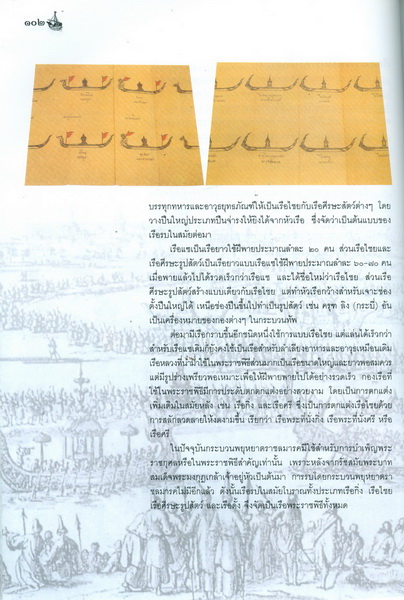 ๑๐๒
บรรทุกทหารและอาวุธยุทธภัณฑ์ให้เป็นเรือไชยกับเรือศีรษะสัตว์ต่างๆ โดย
วางปืนใหญ่ประเภทปืนจ่ารงให้ยิงได้จากหัวเรือ ซึ่งจัดว่าเป็นต้นแบบของ
เรือรบในสมัยต่อมา
เรือแซเป็นเรือยาวใช้ฝีพายประมาณลำละ ๒๐ คน ส่วนเรือไชยและ
เรือศีรษะรูปสัตว์เป็นเรือยาวแบบเรือแซใช้ฝีพายประมาณลำละ ๖๐-๗๐ คน
เมื่อพายแล้วไปได้รวดเร็วกว่าเรือแซ และได้ชื่อใหม่ว่าเรือไชย ส่วนเรือ
ศีรษะรูปสัตว์สร้างแบบเดียวกับเรือไชย แต่ทำหัวเรือกว้างสำหรับเจาะช่อง
ตั้งปืนใหญ่ได้ เหนือช่องปืนขึ้นไปทำเป็นรูปสัตว์ เช่น ครุฑ ลิง (กระบี่) อัน
เป็นเครื่องหมายของกองต่างๆ ในกระบวนทัพ
ต่อมามีเรือกราบขึ้นอีกชนิดหนึ่งใช้การแบบเรือไชย แต่แล่นได้เร็วกว่า
สำหรับเรือแซเดิมก็ยังคงใช้เป็นเรือสำหรับลำเลียงอาหารและอาวุธเหมือนเดิม
เรือหลวงที่นำมาใช้ในพระราชพิธีส่วนมากเป็นเรือขนาดใหญ่และยาวพอสมควร
แต่มีรูปร่างเพรียวพอเหมาะเพื่อให้ฝีพายพายไปได้อย่างรวดเร็ว กองเรือที่
ใช้ในพระราชพิธีมีการประดับตกแต่งอย่างสวยงาม โดยเป็นการตกแต่ง
เพิ่มเติมในสมัยหลัง เช่น เรือกิ่ง และเรือศรี ซึ่งเป็นการตกแต่งเรือไชยด้วย
การสลักลวดลายให้งดงามขึ้น เรียกว่า เรือพระที่นั่งกิ่ง เรือพระที่นั่งศรี หรือ
เรือศรี
ในปัจจุบันกระบวนพยุหยาตราชลมารคมีใช้สำหรับการบำเพ็ญพระ
ราชกุศลหรือในพระราชพิธีสำคัญเท่านั้น เพราะหลังจากรัชสมัยพระบาท
สมเด็จพระมงกุฎเกล้าเจ้าอยู่หัวเป็นต้นมา การรบโดยกระบวนพยุหยาตรา
ชลมารคไม่มีอีกแล้ว ดังนั้นเรือรบในสมัยโบราณทั้งประเภทเรือกิ่ง เรือไชย
เรือศีรษะรูปสัตว์ และเรือดั้ง จึงจัดเป็นเรือพระราชพิธีทั้งหมด